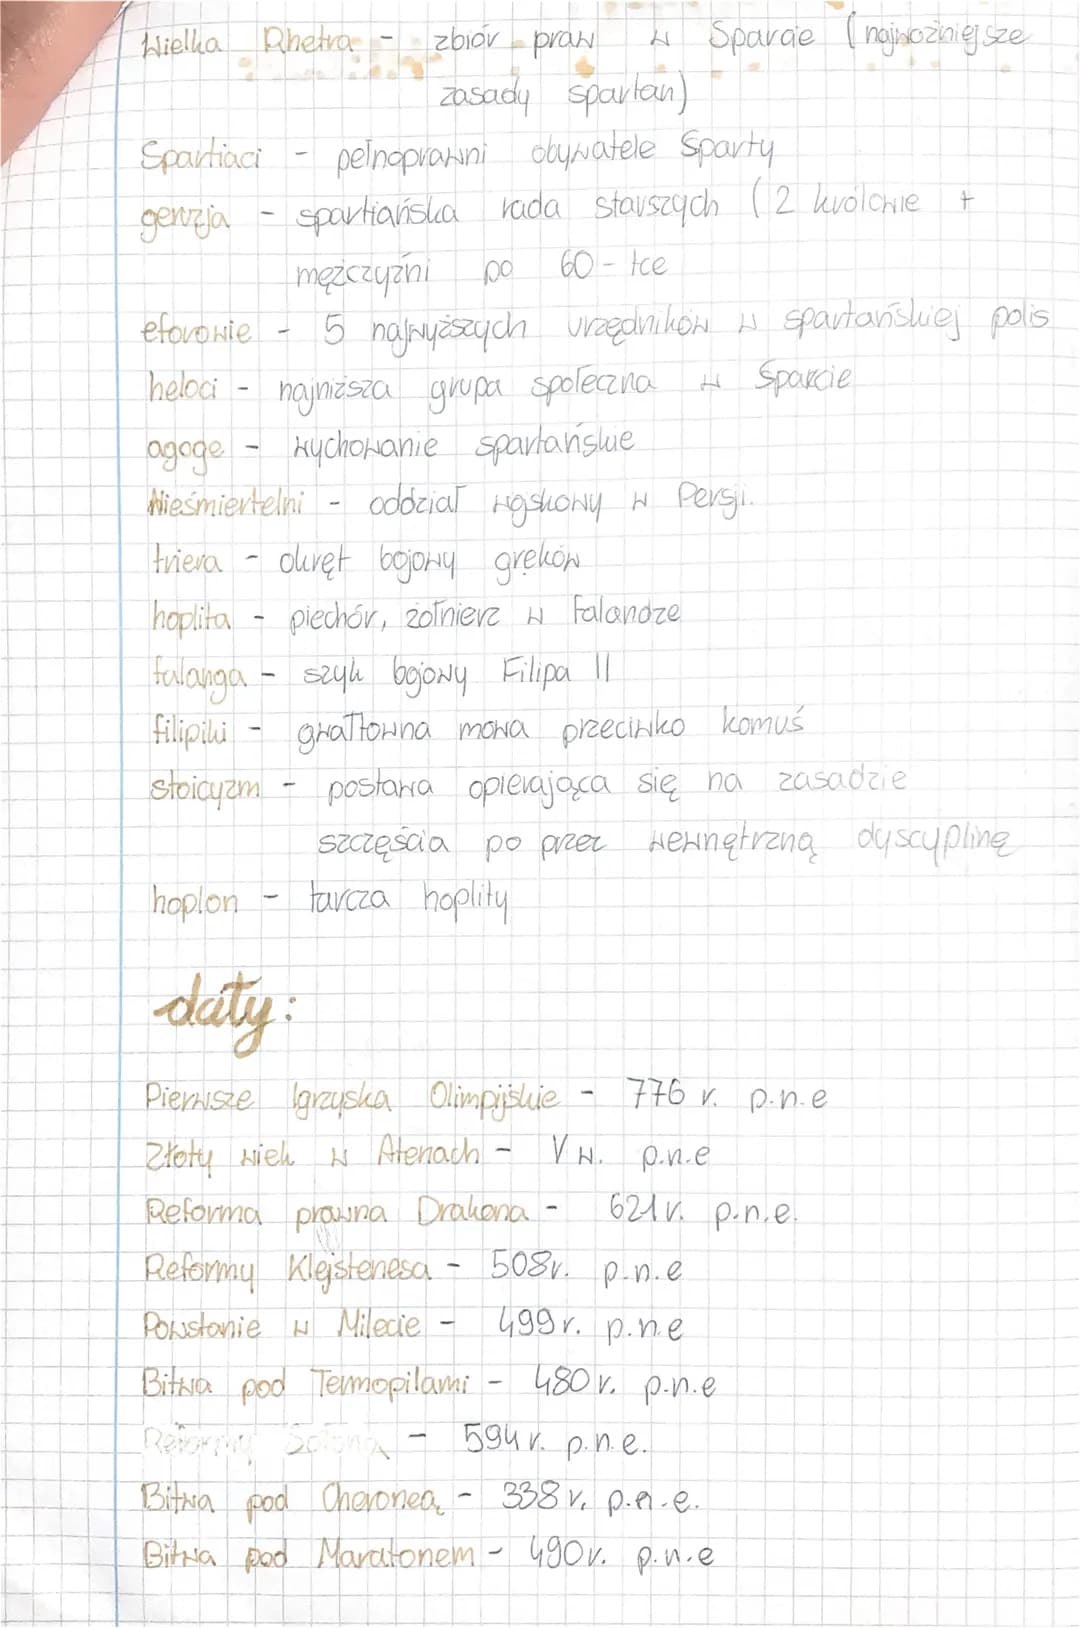 Wielka Rhetra - zbiór praw w Sparcie (najważniejsze
zasady spartan)
Spartiaci - pełnoprawni obywatele Sparty
geruzja - spartiańska rada starszych (2 królowie +
mężczyźni po 60-tce
eforowie - 5 najwyższych urzędników w spartańskiej polis
heloci - najniższa grupa społeczna w Sparcie
agoge - wychowanie spartańskie
Nieśmiertelni - oddział wojskowy w Persji.
triera - okręt bojowy greków
hoplita - piechór, żołnierz w Falandze
falanga - szyk bojowy Filipa II
filipiki - gwałtowna mowa przeciwko komuś
stoicyzm - postawa opierająca się na zasadzie
szczęścia po przez wewnętrzną dyscyplinę
hoplon - tarcza hoplity
daty:
Pierwsze Igrzyska Olimpijskie - 776 r. p.n.e
Złoty wiek w Atenach - V w. p.n.e
Reforma prawna Drakona - 621 r. p.n.e.
Reformy Klejstenesa - 508r. p.n.e
Powstanie w Milecie - 499 r. p.n.e
Bitwa pod Termopilami - 480 r. p.n.e
Reformy Solona - 594 r. p.n.e.
Bitwa pod Cheroneą - 338 r. p.n.e.
Bitwa pod Maratonem - 490r. p.n.e